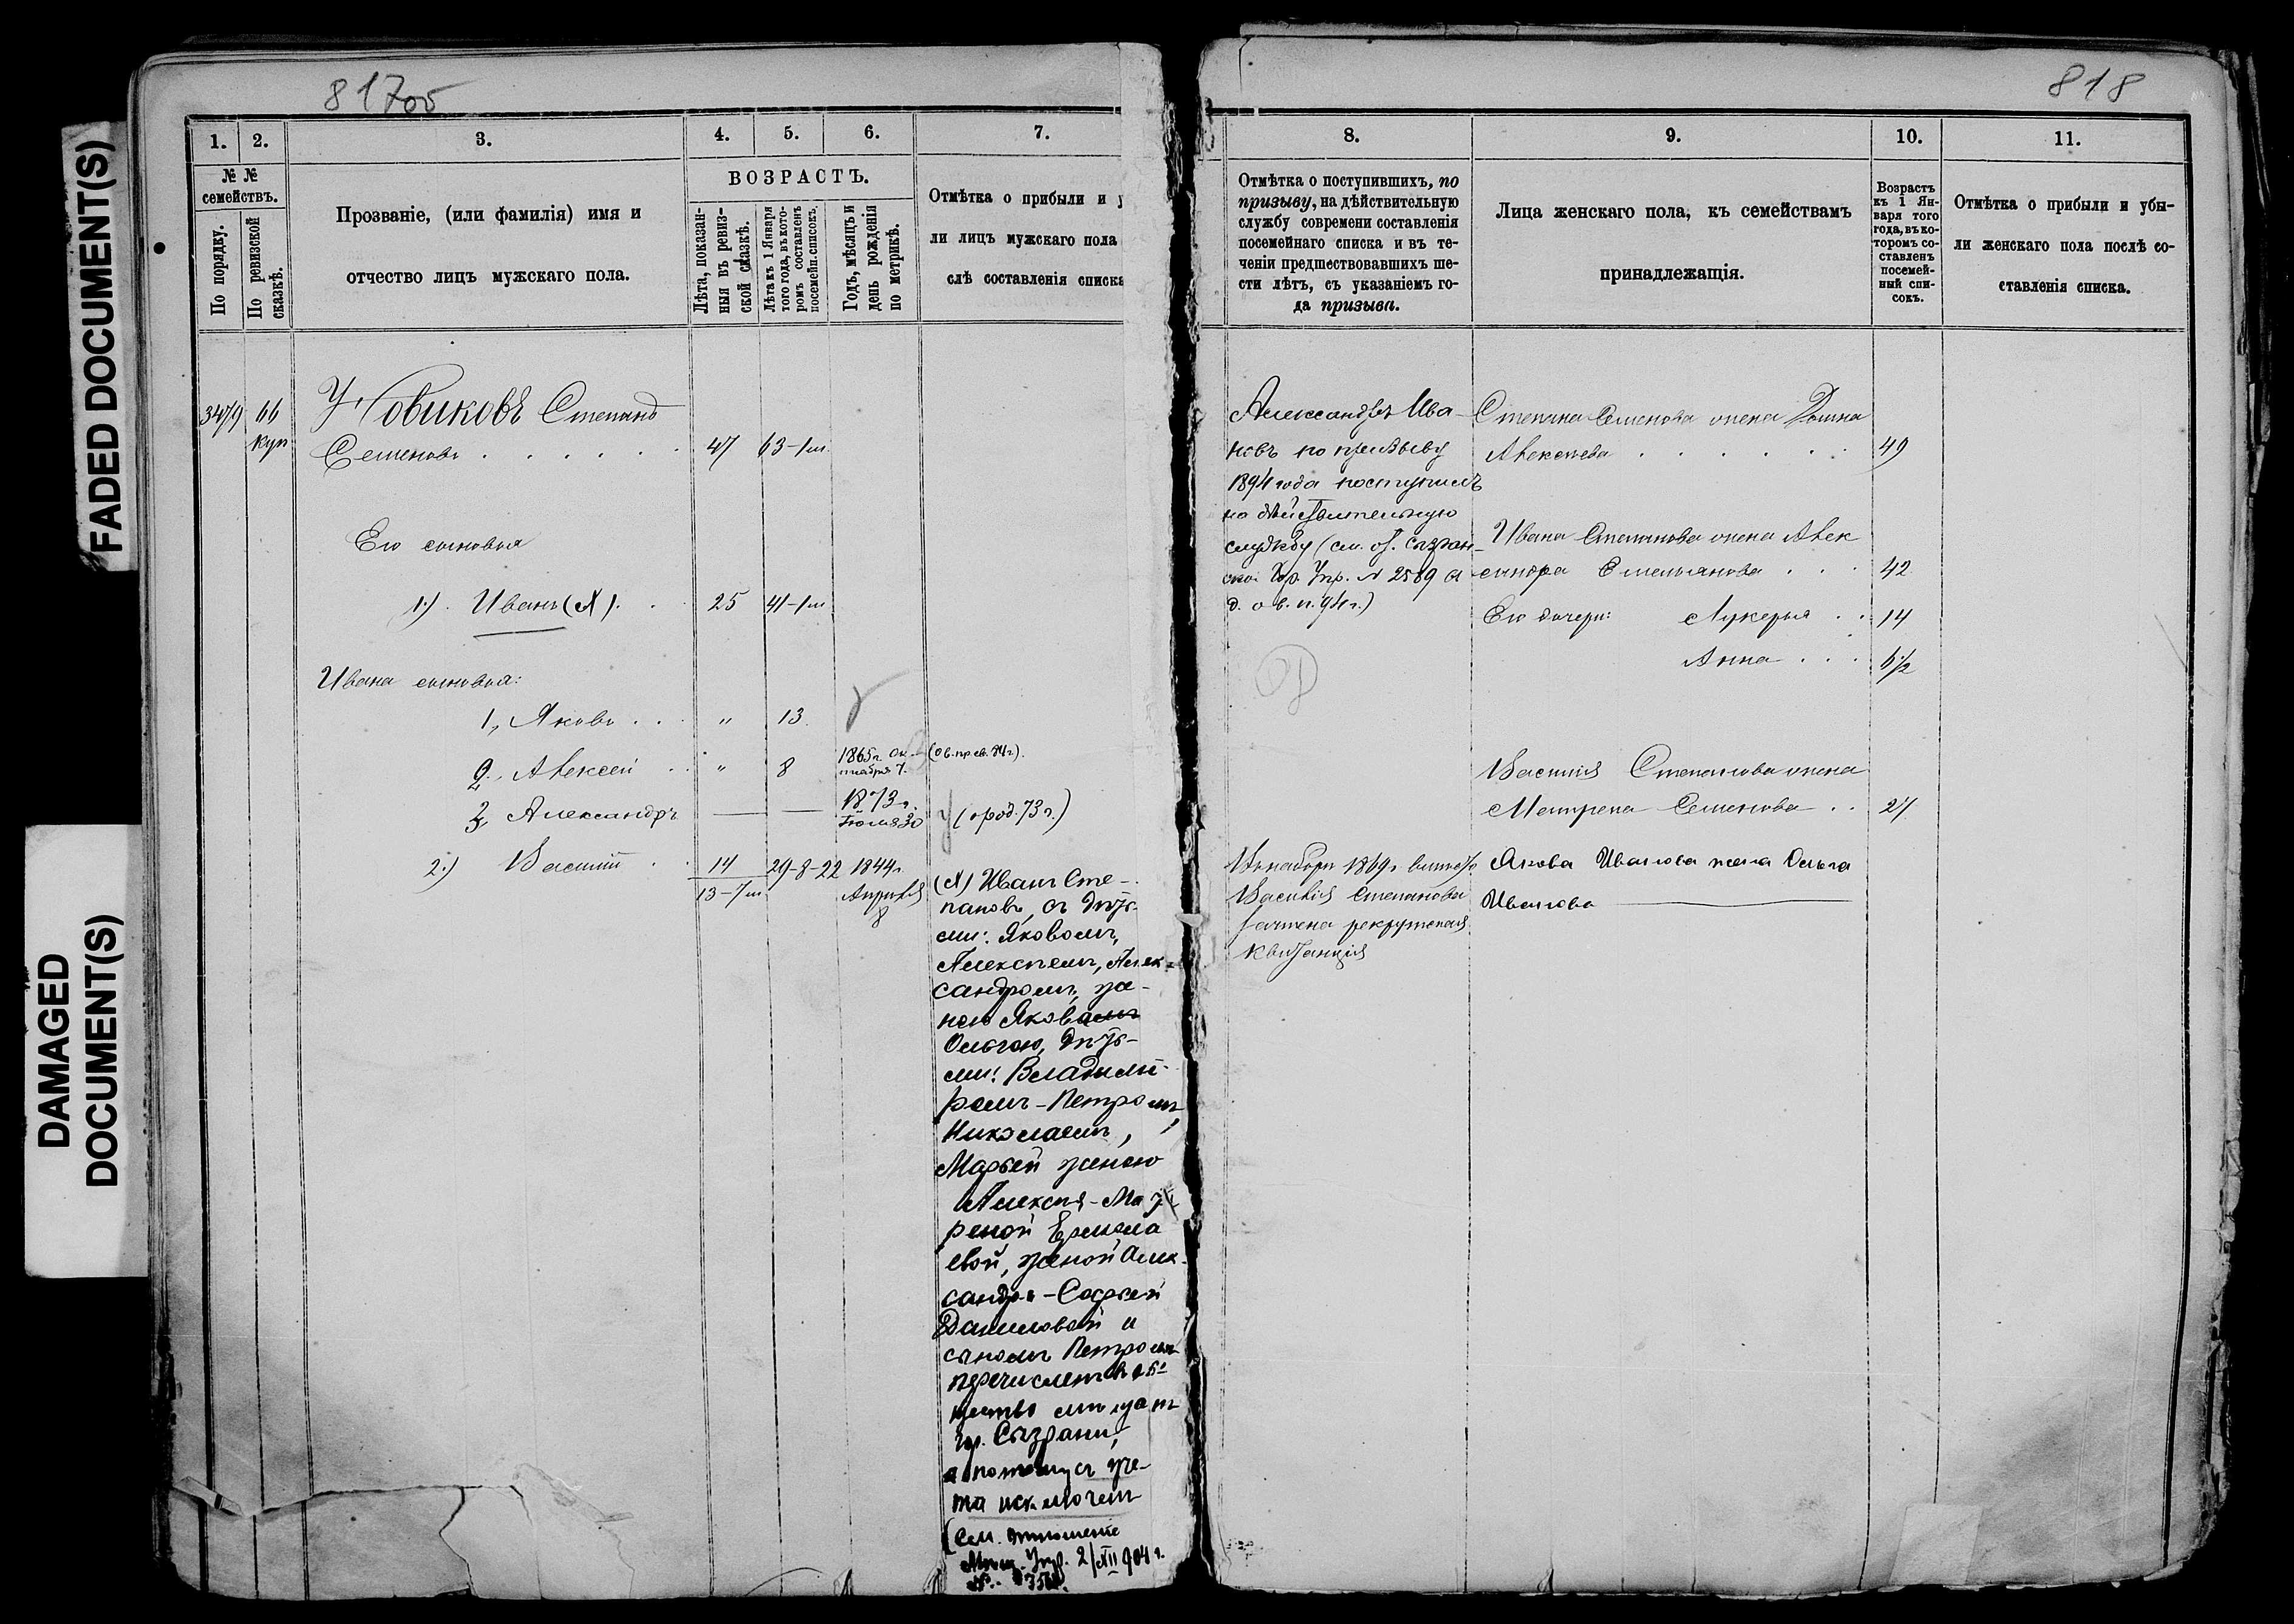 817об
818
FADED DOCUMENT(S)
DAMAGED
DOCUMENT(S)
1.
2.
3.
4.
5.
6.
7.
№ №
семействъ.
По порядку.
По ревизской
сказкѣ.
Прозваніе, (или фамилія) имя и
отчество лицъ мужскаго пола.
ВОЗРАСТЪ.
Лѣта, показан-
ныя въ ревиз-
ской сказкѣ.
Лѣта къ 1 Января
того года, въ кото-
ромъ составленъ
посемейн. списокъ.
Годъ, мѣсяцъ и
день рожденія
по метрикѣ.
Отмѣтка о прибыли и у
ли лицъ мужскаго пола
слѣ составленія списка
66
куп
Новиковъ Степанъ
Семеновъ 47 63-1м.
Его сыновья
1.) Иванъ (X) 25 41-1м
Ивана сыновья:
1, Яковъ " 13
2, Алексей " 8 1865г. Ок-
тября 7.
3, Александръ — — 1873г.
Іюля 30 (о род. 73 г.)
2.) Василій 14 29-8-22 1844г.
13-7м. Апрѣля
8
(X) Иванъ Сте-
пановъ, съ дѣть-
ми: Яковомъ,
Алексѣемъ, Алек-
сандромъ, же-
ною Якова
Ольгою, дѣть-
ми: Владими-
ромъ-Петромъ,
Николаемъ,
Марьей женою
Алексѣя-Мат
реной Ермола
евой, женой Алек-
сандра-Софьей
Даниловой и
сыномъ Петромъ
перечисленъ въ об-
щество мѣщанъ
гор. Сызрани,
а потому съ уче-
та исключенъ
(См. отношеніе
Мѣщ. Упр. 2/XII 904 г.
8.
9.
10.
11.
Отмѣтка о поступившихъ, по
призыву, на дѣйствительную
службу современи составленія
посемейнаго списка и въ те-
ченіи предшествовавшихъ ше-
сти лѣтъ, съ указаніемъ го-
да призыва.
Лица женскаго пола, къ семействамъ
принадлежащія.
Возрастъ
къ 1 Ян-
варя того
года, въ ко-
торомъ со-
ставленъ
посемей-
ный спи-
сокъ.
Отмѣтка о прибыли и убы-
ли женскаго пола послѣ со-
ставленія списка.
Александръ Ива-
новъ по призыву
1894 года поступилъ
на дѣйствительную
службу (см. от. Сызран-
ской Гор. Упр. № 2589
Въ ноябрѣ 1869г. вмѣсто
Василія Степанова
зачтена рекрутская
квитанція
Степана Семенова жена Домна
Алексѣева 49
Ивана Степанова жена Алек
сандра Емельянова 42
Его дочери: Лукерья 14
Анна 6½
Василія Степанова жена
Матрена Семенова 27
Якова Иванова жена Ольга
Иванова